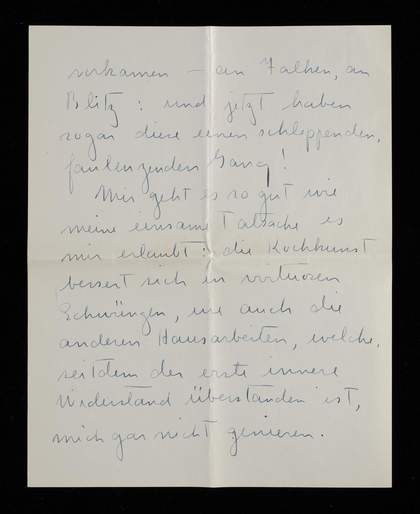 vorkamen – an Falken, an
Blitz: und jetzt haben
sogar diese einen schleppenden,
faulenzenden Gang!
Mir geht es so gut wie
meine einsame Tatsache es
mir erlaubt: die Kochkunst
bessert sich in virtuosen
Schwüngen, wie auch die
anderen Hausarbeiten, welche,
seitdem der erste innere
Widerstand überstanden ist,
mich gar nicht genieren.